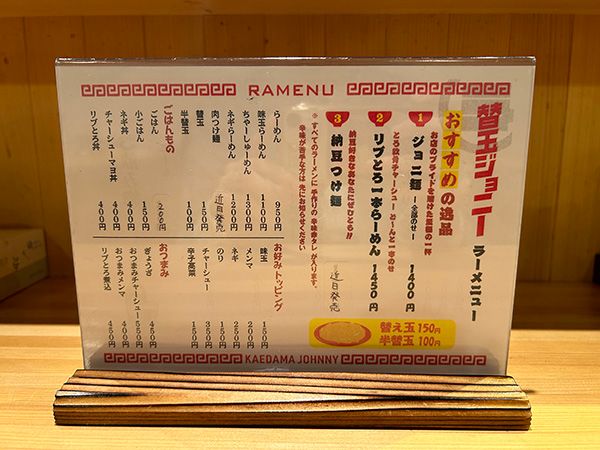 RAMENU
替玉ジョニー ラーメニュー
おすすめの逸品
お店のプライドを賭けた至極の一杯
1 ジョニ麺 -全部のせ- 1400円
とろ軟骨チャーシューど〜んと一本のせ
2 リブとろ一本らーめん 1450円
納豆好きなあなたにぜひとも!!
3 納豆つけ麺 近日発売
※すべてのラーメンに手作りの辛味肉タレが入ります。
辛味が苦手な方は先にお知らせください
替え玉 150円
半替玉 100円
らーめん 950円
味玉らーめん 1100円
ちゃーしゅーめん 1300円
ネギらーめん 1200円
肉つけ麺 近日発売
替玉 150円
半替玉 100円
ごはんもの
ごはん 200円
小ごはん 150円
ネギ丼 400円
チャーシューマヨ丼 400円
リブとろ丼 400円
お好みトッピング
味玉 150円
メンマ 200円
ネギ 250円
のり 150円
チャーシュー 350円
辛子高菜 150円
おつまみ
ぎょうざ 450円
おつまみチャーシュー 550円
おつまみメンマ 400円
リブとろ煮込 450円
KAEDAMA JOHNNY